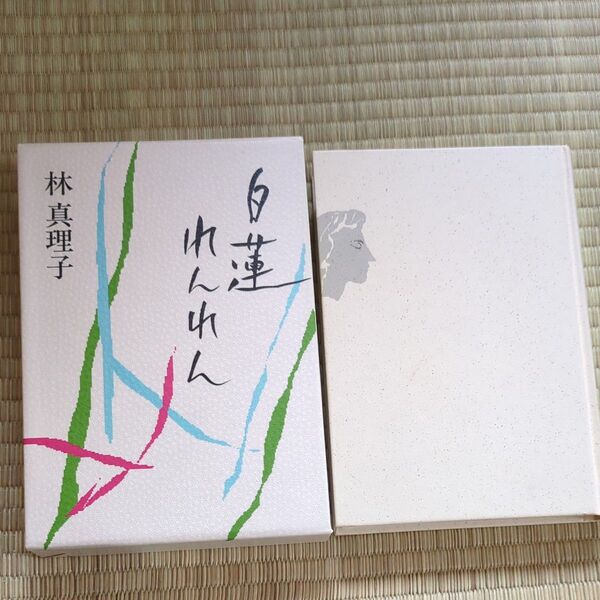 白蓮
れんれん
林真理子